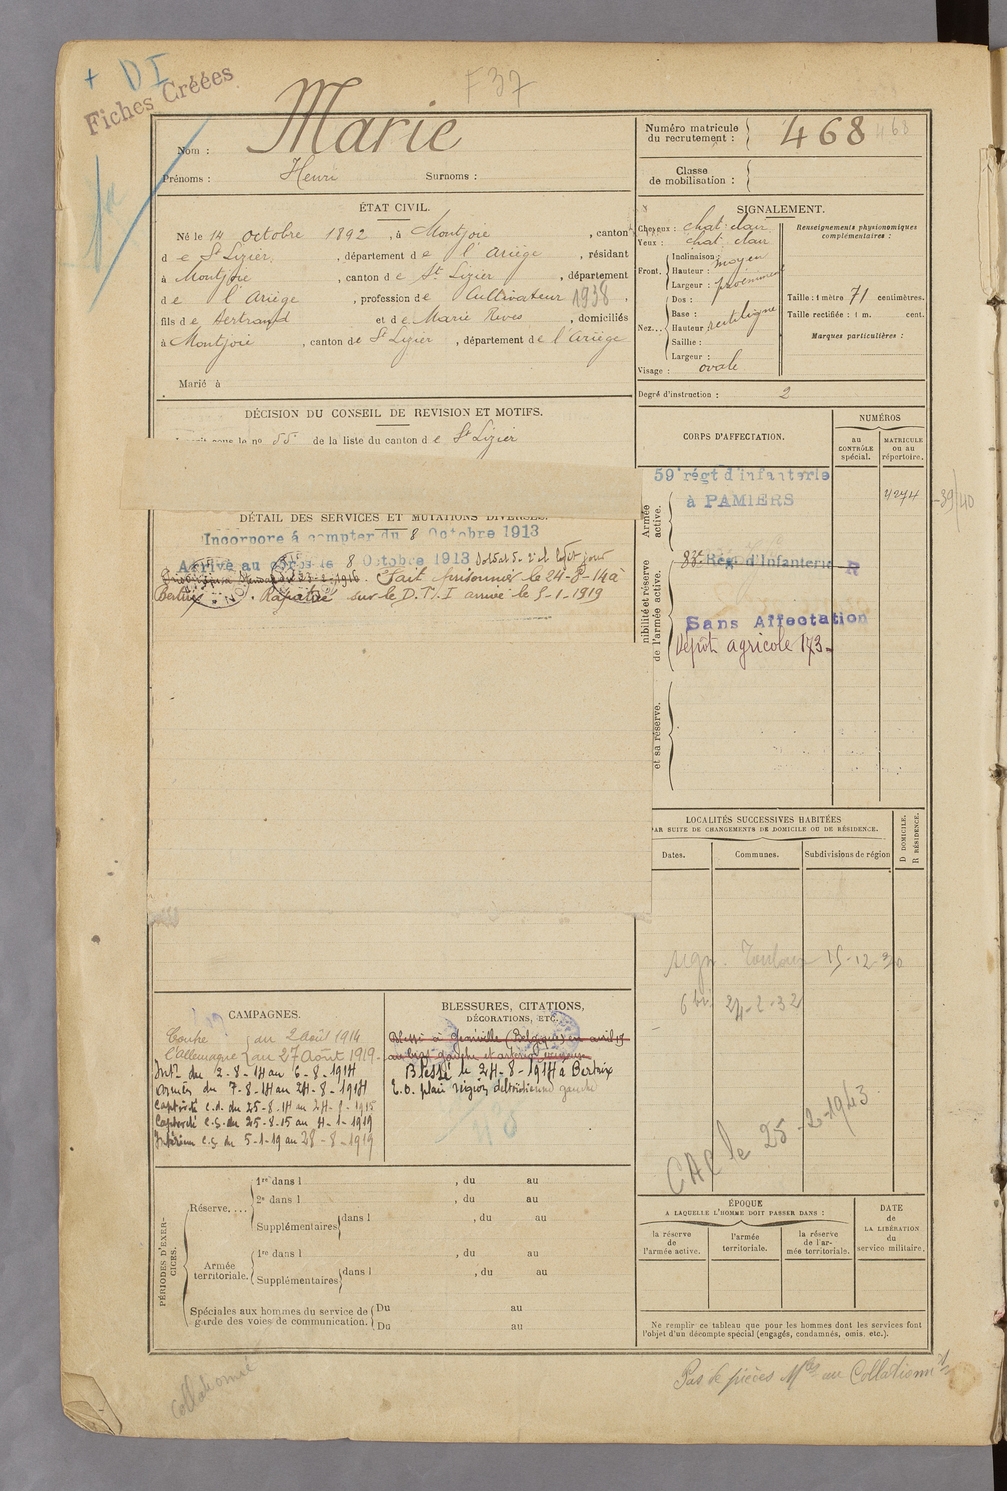 + DI
Fiches Créées
F 37
Nom : Marie
Prénoms : Henri Surnoms :
Numéro matricule du recrutement : 468 468
Classe de mobilisation :
ÉTAT CIVIL.
Né le 14 octobre 1892, à Montjoie, canton
d e St Lizier, département de l'Ariège, résidant
à Montjoie, canton de St Lizier, département
de l'Ariège, profession de Cultivateur 1938,
fils de Bertrand et de Marie Reves, domiciliés
à Montjoie, canton de St Lizier, département de l'Ariège
Marié à
SIGNALEMENT.
Cheveux : chat. clair
Yeux : chat. clair
Front. Inclinaison : moyen
Hauteur :
Largeur : proéminent
Nez... Dos :
Base :
Hauteur : rectiligne
Saillie :
Largeur :
Visage : ovale
Renseignements physionomiques complémentaires :
Taille : 1 mètre 71 centimètres.
Taille rectifiée : 1 m. cent.
Marques particulières :
Degré d'instruction : 2
DÉCISION DU CONSEIL DE REVISION ET MOTIFS.
Inscrit sous le no 55 de la liste du canton de St Lizier
DÉTAIL DES SERVICES ET MUTATIONS DIVERSES.
Incorporé à compter du 8 Octobre 1913
Arrivé au corps le 8 Octobre 1913 Soldat de 2e cl. le dit jour
Fait prisonnier le 24-8-14 à
Bertrix. Rapatrié sur le D.T.I arrivé le 5-1-1919
CORPS D'AFFECTATION.
NUMÉROS
au CONTRÔLE spécial.
MATRICULE ou au répertoire.
Armée active.
59e régt d'Infanterie
à PAMIERS
4274
-39/40
nibilité et réserve de l'armée active.
83e Régt d'Infanterie R
Sans Affectation
Dépôt agricole 173
et sa réserve.
LOCALITÉS SUCCESSIVES HABITÉES
PAR SUITE DE CHANGEMENTS DE DOMICILE OU DE RÉSIDENCE.
Dates. Communes. Subdivisions de région
D DOMICILE.
R RÉSIDENCE.
15-12-30
24-2-32
CAC le 25-2-1943
CAMPAGNES.
Contre l'Allemagne
du 2 août 1914
au 27 août 1919
Intr du 2-8-14 au 6-8-1914
Armées du 7-8-14 au 24-8-1914
Captivité c.d. du 25-8-14 au 24-8-1915
Captivité c.s. du 25-8-15 au 4-1-1919
Intérieur c.s. du 5-1-19 au 28-8-1919
BLESSURES, CITATIONS,
DÉCORATIONS, ETC.
Blessé le 24-8-1914 à Bertrix
E.O. plaie région deltoïdienne gauche
PÉRIODES D'EXERCICES.
Réserve....
1re dans l , du au
2e dans l , du au
Supplémentaires dans l , du au
Armée territoriale.
1re dans l , du au
Supplémentaires dans l , du au
Spéciales aux hommes du service de garde des voies de communication.
Du au
Du au
ÉPOQUE
A LAQUELLE L'HOMME DOIT PASSER DANS :
la réserve de l'armée active.
l'armée territoriale.
la réserve de l'armée territoriale.
DATE de LA LIBÉRATION du service militaire.
Ne remplir ce tableau que pour les hommes dont les services font
l'objet d'un décompte spécial (engagés, condamnés, omis, etc.).
Collationné
Pas de pièces